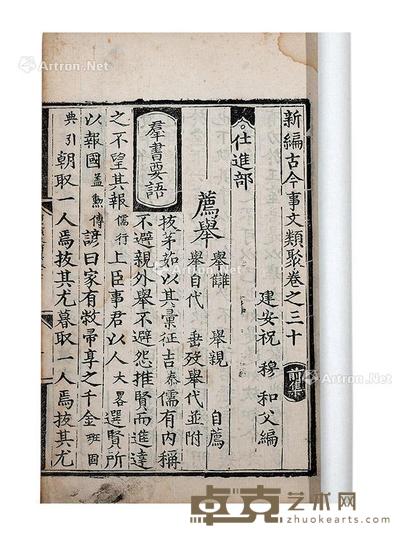 新編古今事文類聚卷之三十 前集
建安祝 穆 和父編
仕進部
薦舉
舉讎 舉親 自薦
舉自代 垂歿舉代並附
羣書要語
拔茅茹以其彙征吉泰儒有內稱
不避親外舉不避怨推賢而進達
之不望其報儒行上臣事君以人大畧選賢所
以報國蓋勲傳諺曰家有敝帚享之千金班固
典引朝取一人焉拔其尤暮取一人焉拔其尤
Artron.Net
Artron.Net
Artron.Net
卓克艺术网
www.zhuokearts.com